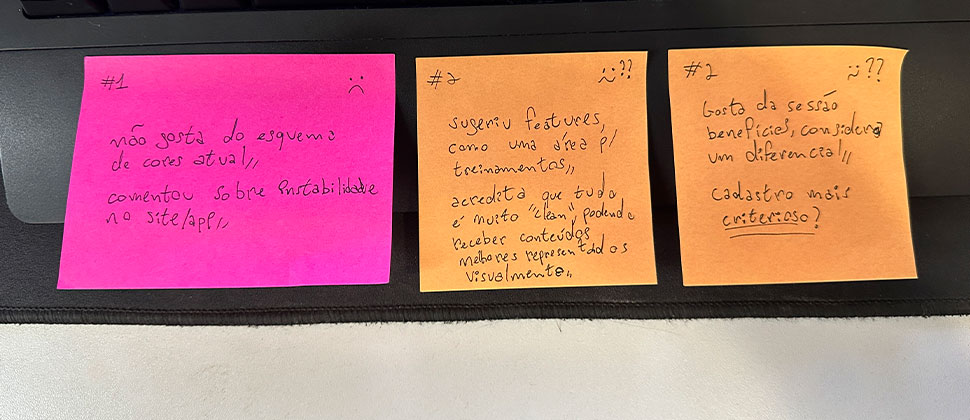 #1
não gosta do esquema
de cores atual,,
comentou sobre instabilidade
no site/app,,
#2
??
sugeriu features,
como uma área p/
treinamentos,,
acredita que tudo
é muito "clean", podendo
receber conteúdos
melhores representados
visualmente,,
#2
??
Gosta da sessão
benefícios, considera
um diferencial,,
Cadastro mais
criterioso?